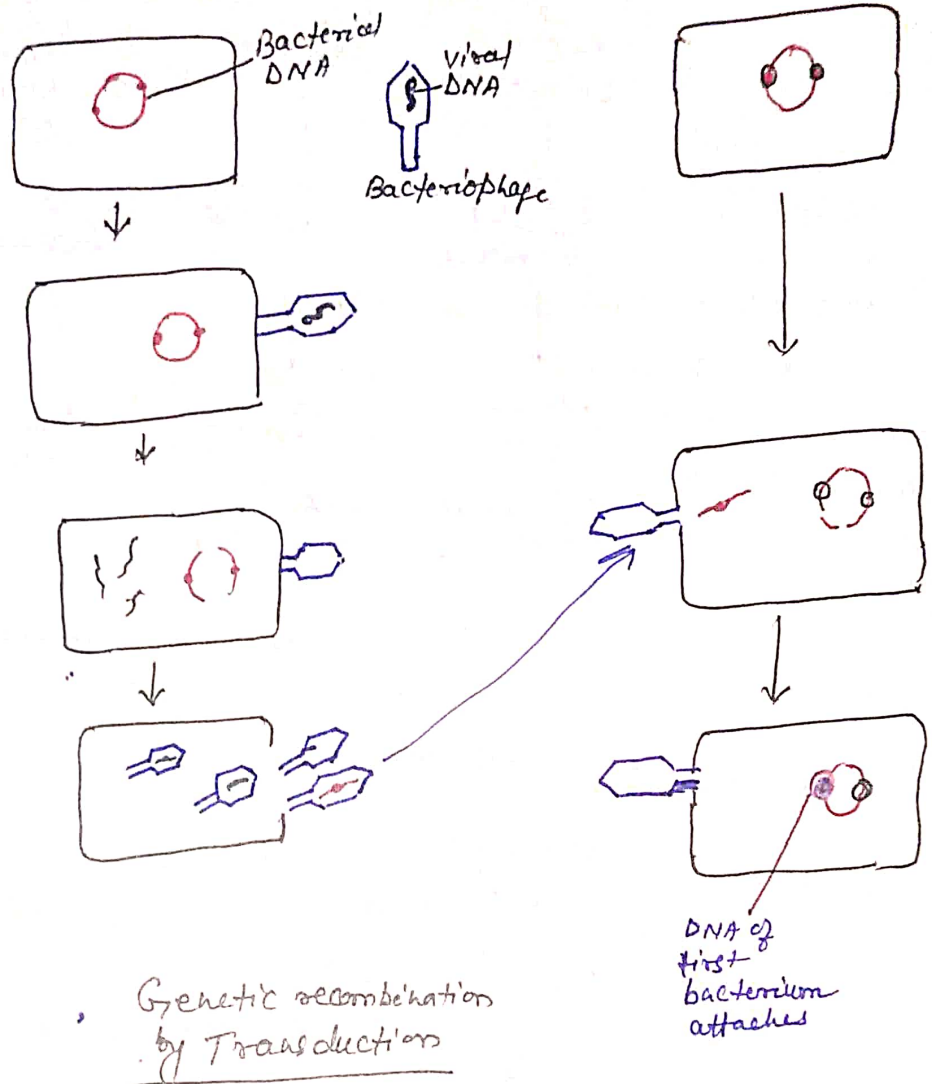 Bacterial
DNA
Viral
DNA
Bacteriophage
DNA of
first
bacterium
attaches
Genetic recombination
by Transduction